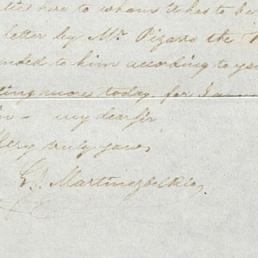 here to whom it has to be
letter by Mr. Pizarro the
to him according to
more today, for I am
my dear Sir
Very truly yours,
Martinez